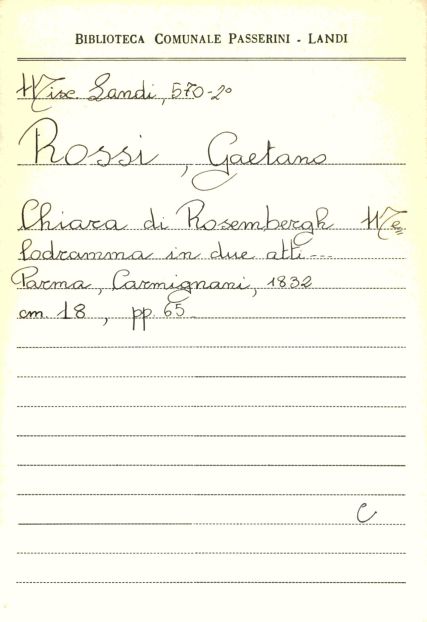 BIBLIOTECA COMUNALE PASSERINI - LANDI
Misc. Landi, 570-2°
Rossi, Gaetano
Chiara di Rosembergh Me=
lodramma in due atti---
Parma, Carmignani, 1832
cm. 18, pp. 65
C